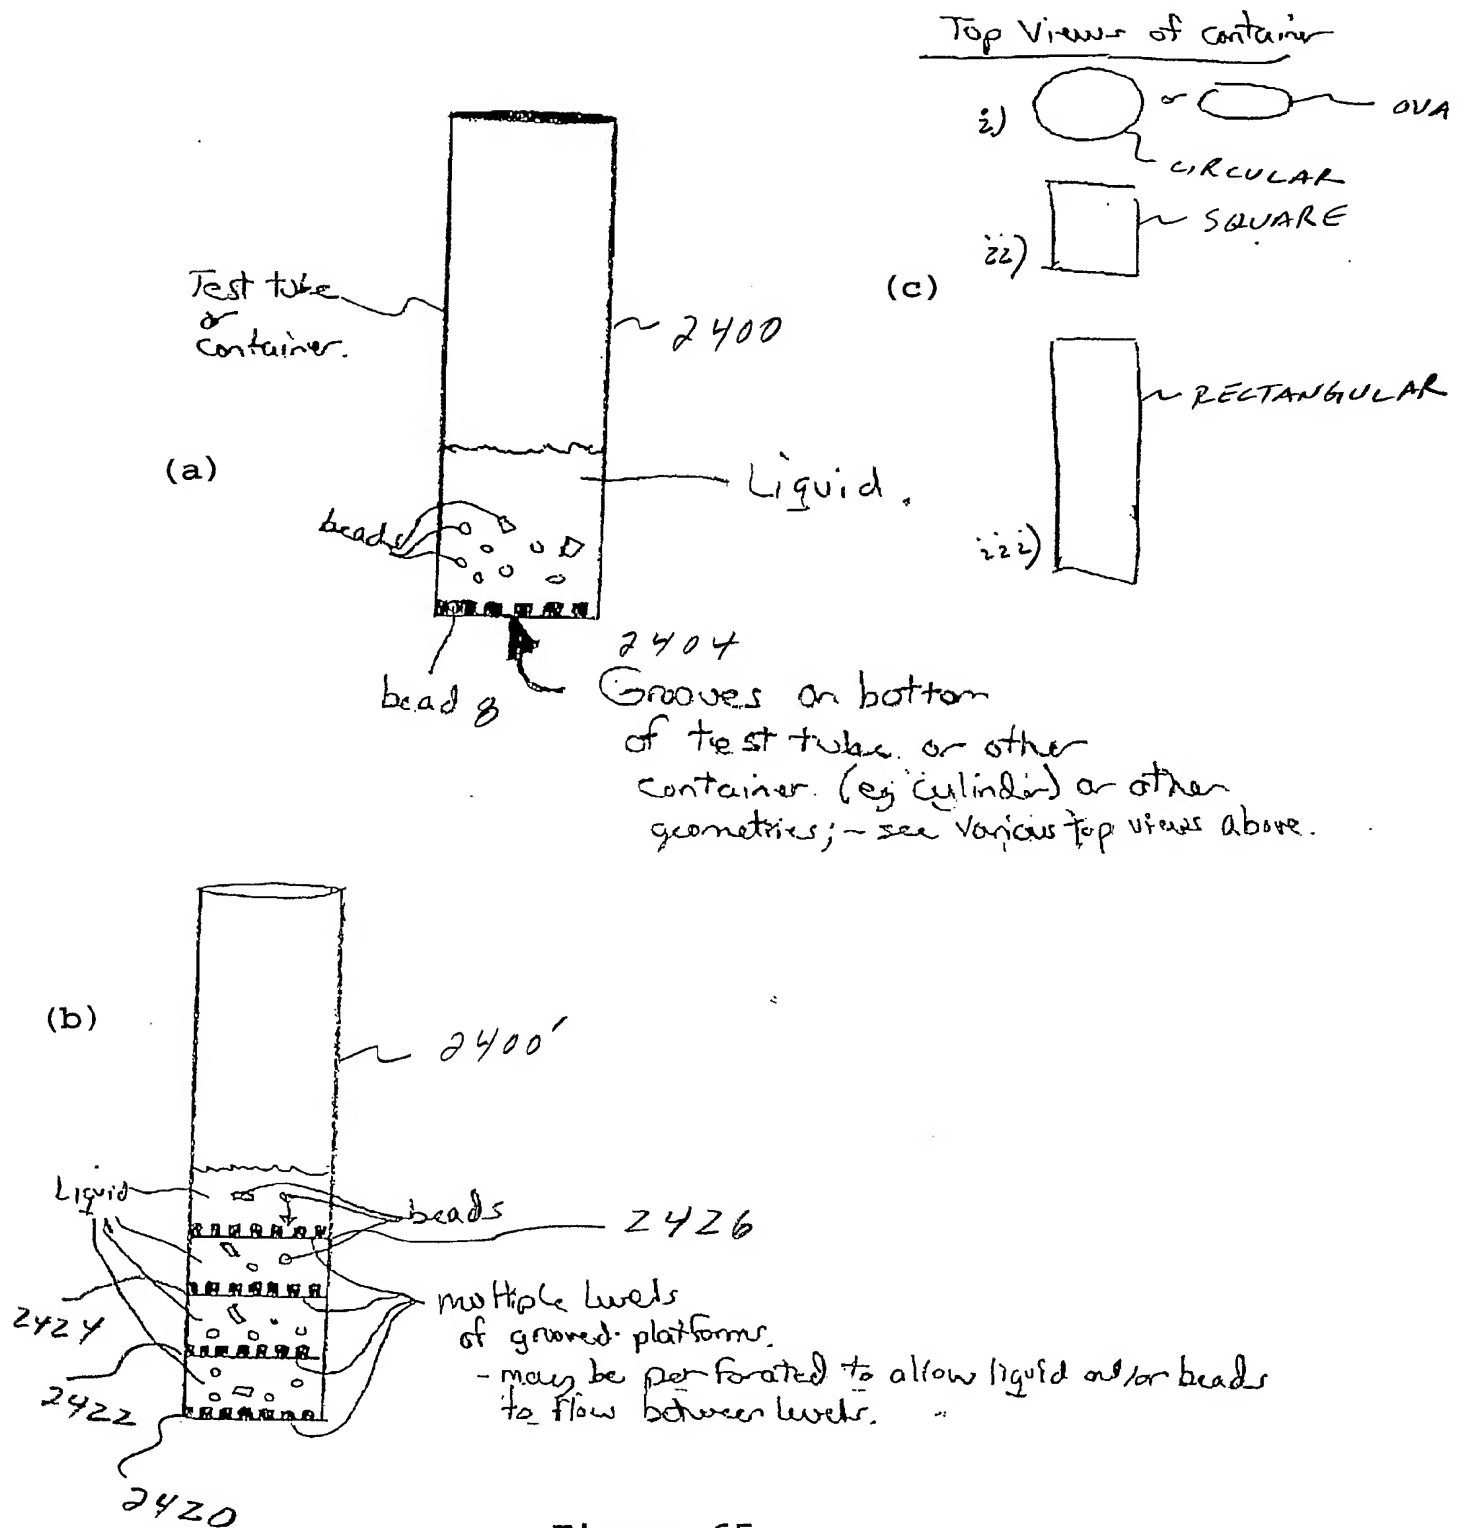 Top Views of container
i)
or
OVA
CIRCULAR
ii)
SQUARE
(c)
iii)
RECTANGULAR
Test tube
or
container.
2400
(a)
Liquid.
beads
bead 8
2404
Grooves on bottom
of test tube or other
container. (eg cylinder) or other
geometries; - see various top views above.
(b)
2400'
Liquid
beads
2426
multiple levels
of grooved platforms.
- may be perforated to allow liquid and/or beads
to flow between levels.
2424
2422
2420